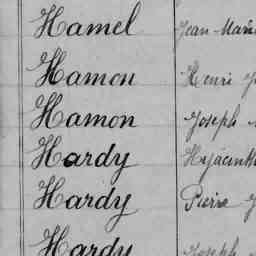 Hamel Jean Marie
Hamon Henri J
Hamon Joseph
Hardy Hyacinthe
Hardy Pierre J
Hardy Joseph